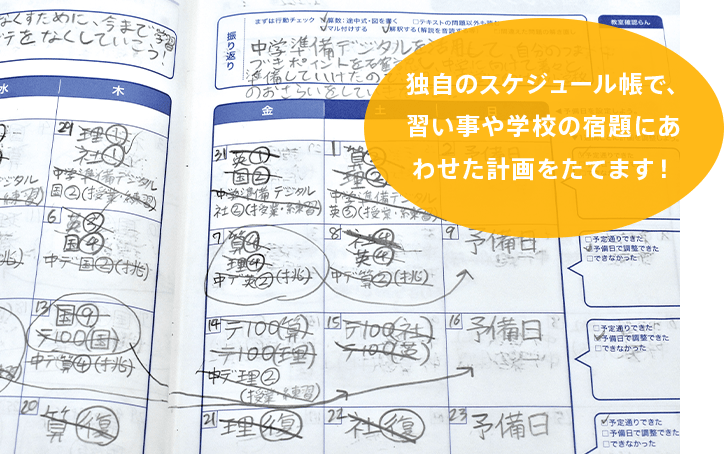 独自のスケジュール帳で、
習い事や学校の宿題にあ
わせた計画をたてます！
なくすために、今まで学習
をなくしていこう！
水
木
29 理①
社①
中学準備デジタル
国②(授業・練習)
6 英③
国④
中デ国②(挑)
13 国⑨
テ100(国)
中デ算④(挑)
20
算復
振り返り
まずは行動チェック
算数：途中式・図を書く
□テキストの問題以外も
マル付けする
解釈する(解説を音読する
教室確認らん
中学準備デジタルを
準備していけたの
のおさらいをしてい
金
土
日
31 英①
国②
中学準備デジタル
社②(授業・練習)
1
理③
中学準備デジタル
英③(授業・練習)
予備日
7 算④
理④
中デ英②(挑)
8 社④
英④
中デ算②(挑)
9 予備日
□予定通りできた
予備日で調整できた
□できなかった
14 テ100(算)
テ100(理)
中デ理②
(授業・練習)
15 テ100(社)
テ100(英)
16 予備日
予定通りできた
予備日で調整できた
□できなかった
21 理復
22 社復
23 予備日
予定通りできた
□予備日で調整できた
□できなかった